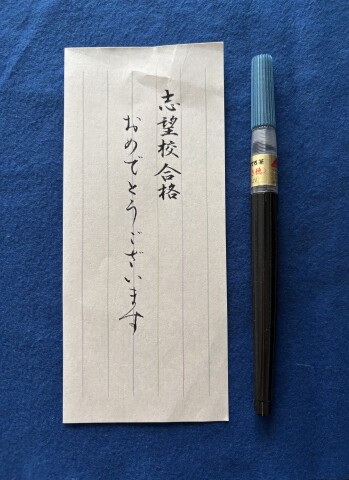 志望校合格
おめでとうございます